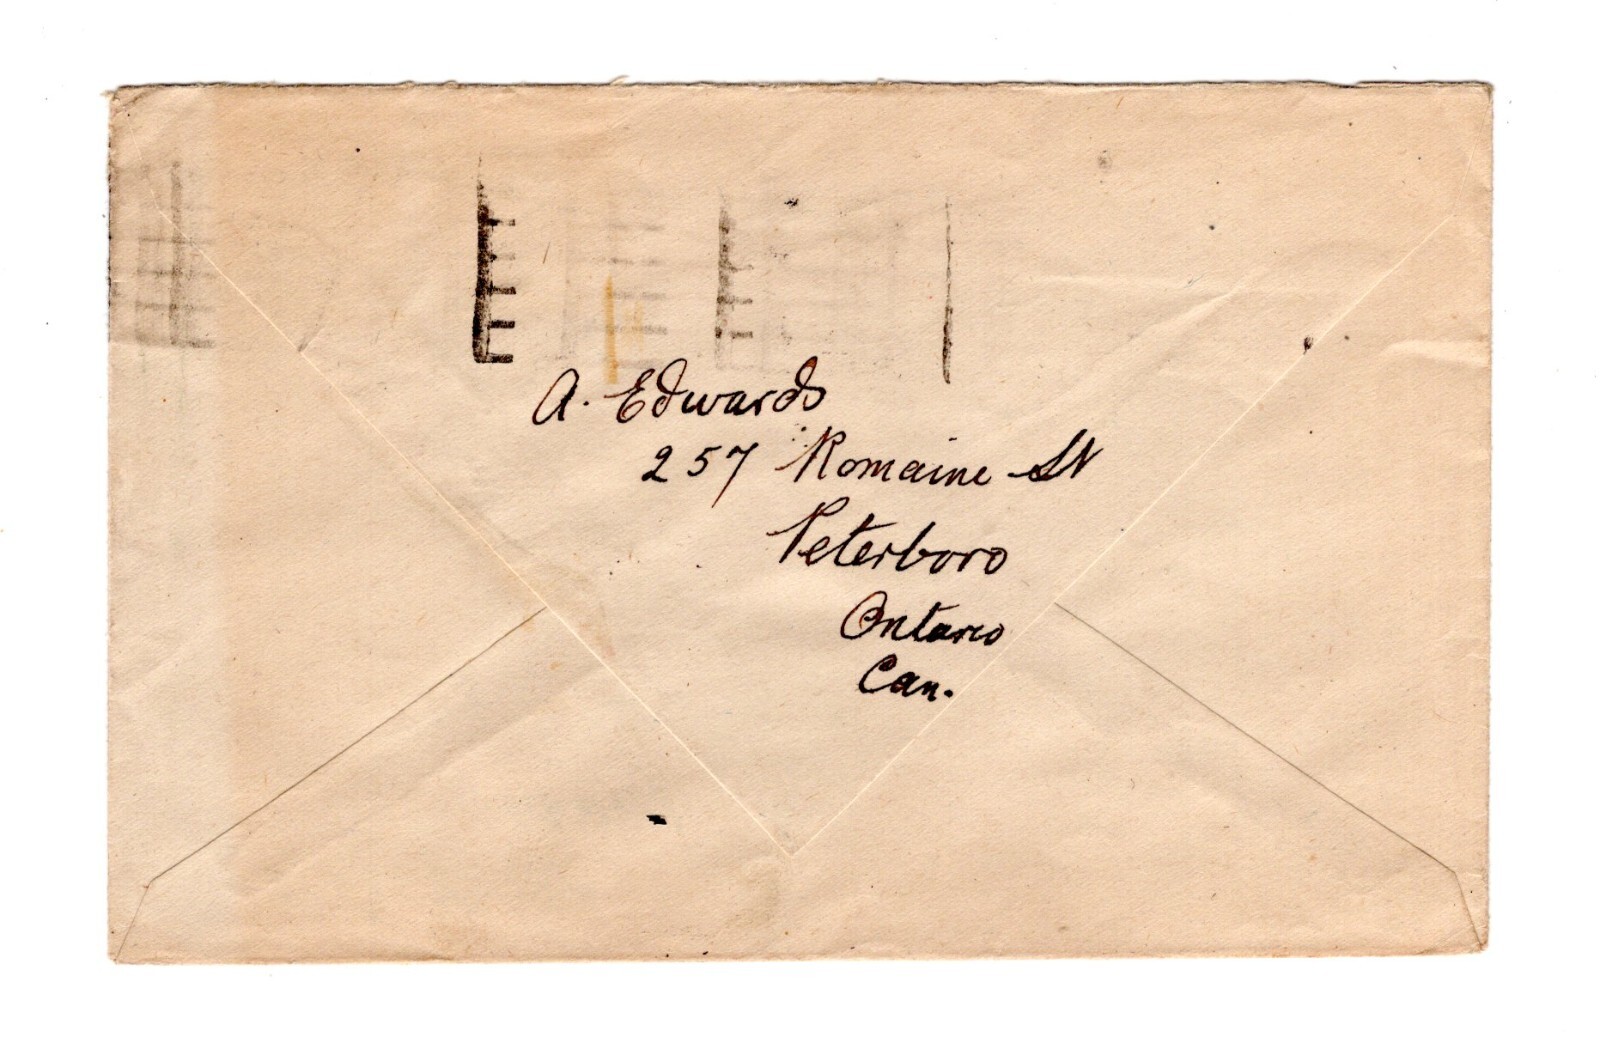 A. Edwards
257 Romaine St
Peterboro
Ontario
Can.